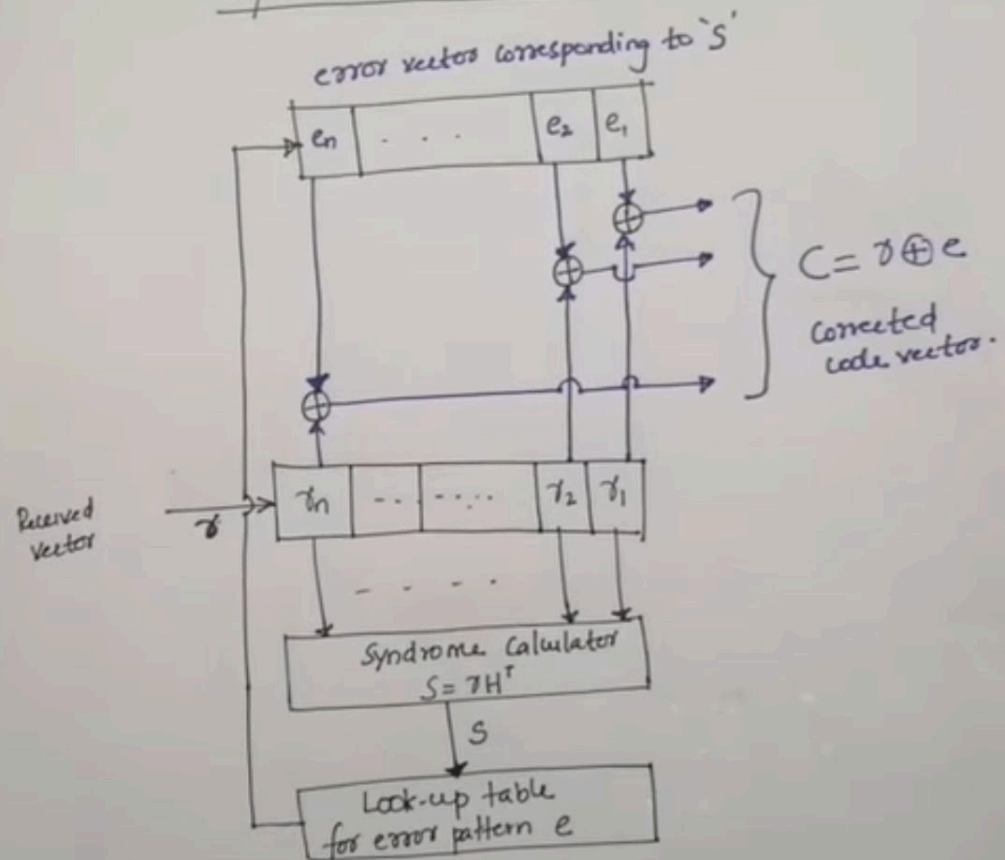 error vector corresponding to 'S'
en . . . e2 e1
C = r ⊕ e
Corrected
code vector.
Received
vector
r
rn -·-· -·-·-· r2 r1
- - - -
Syndrome Calculator
S = rHᵀ
S
Look-up table
for error pattern e